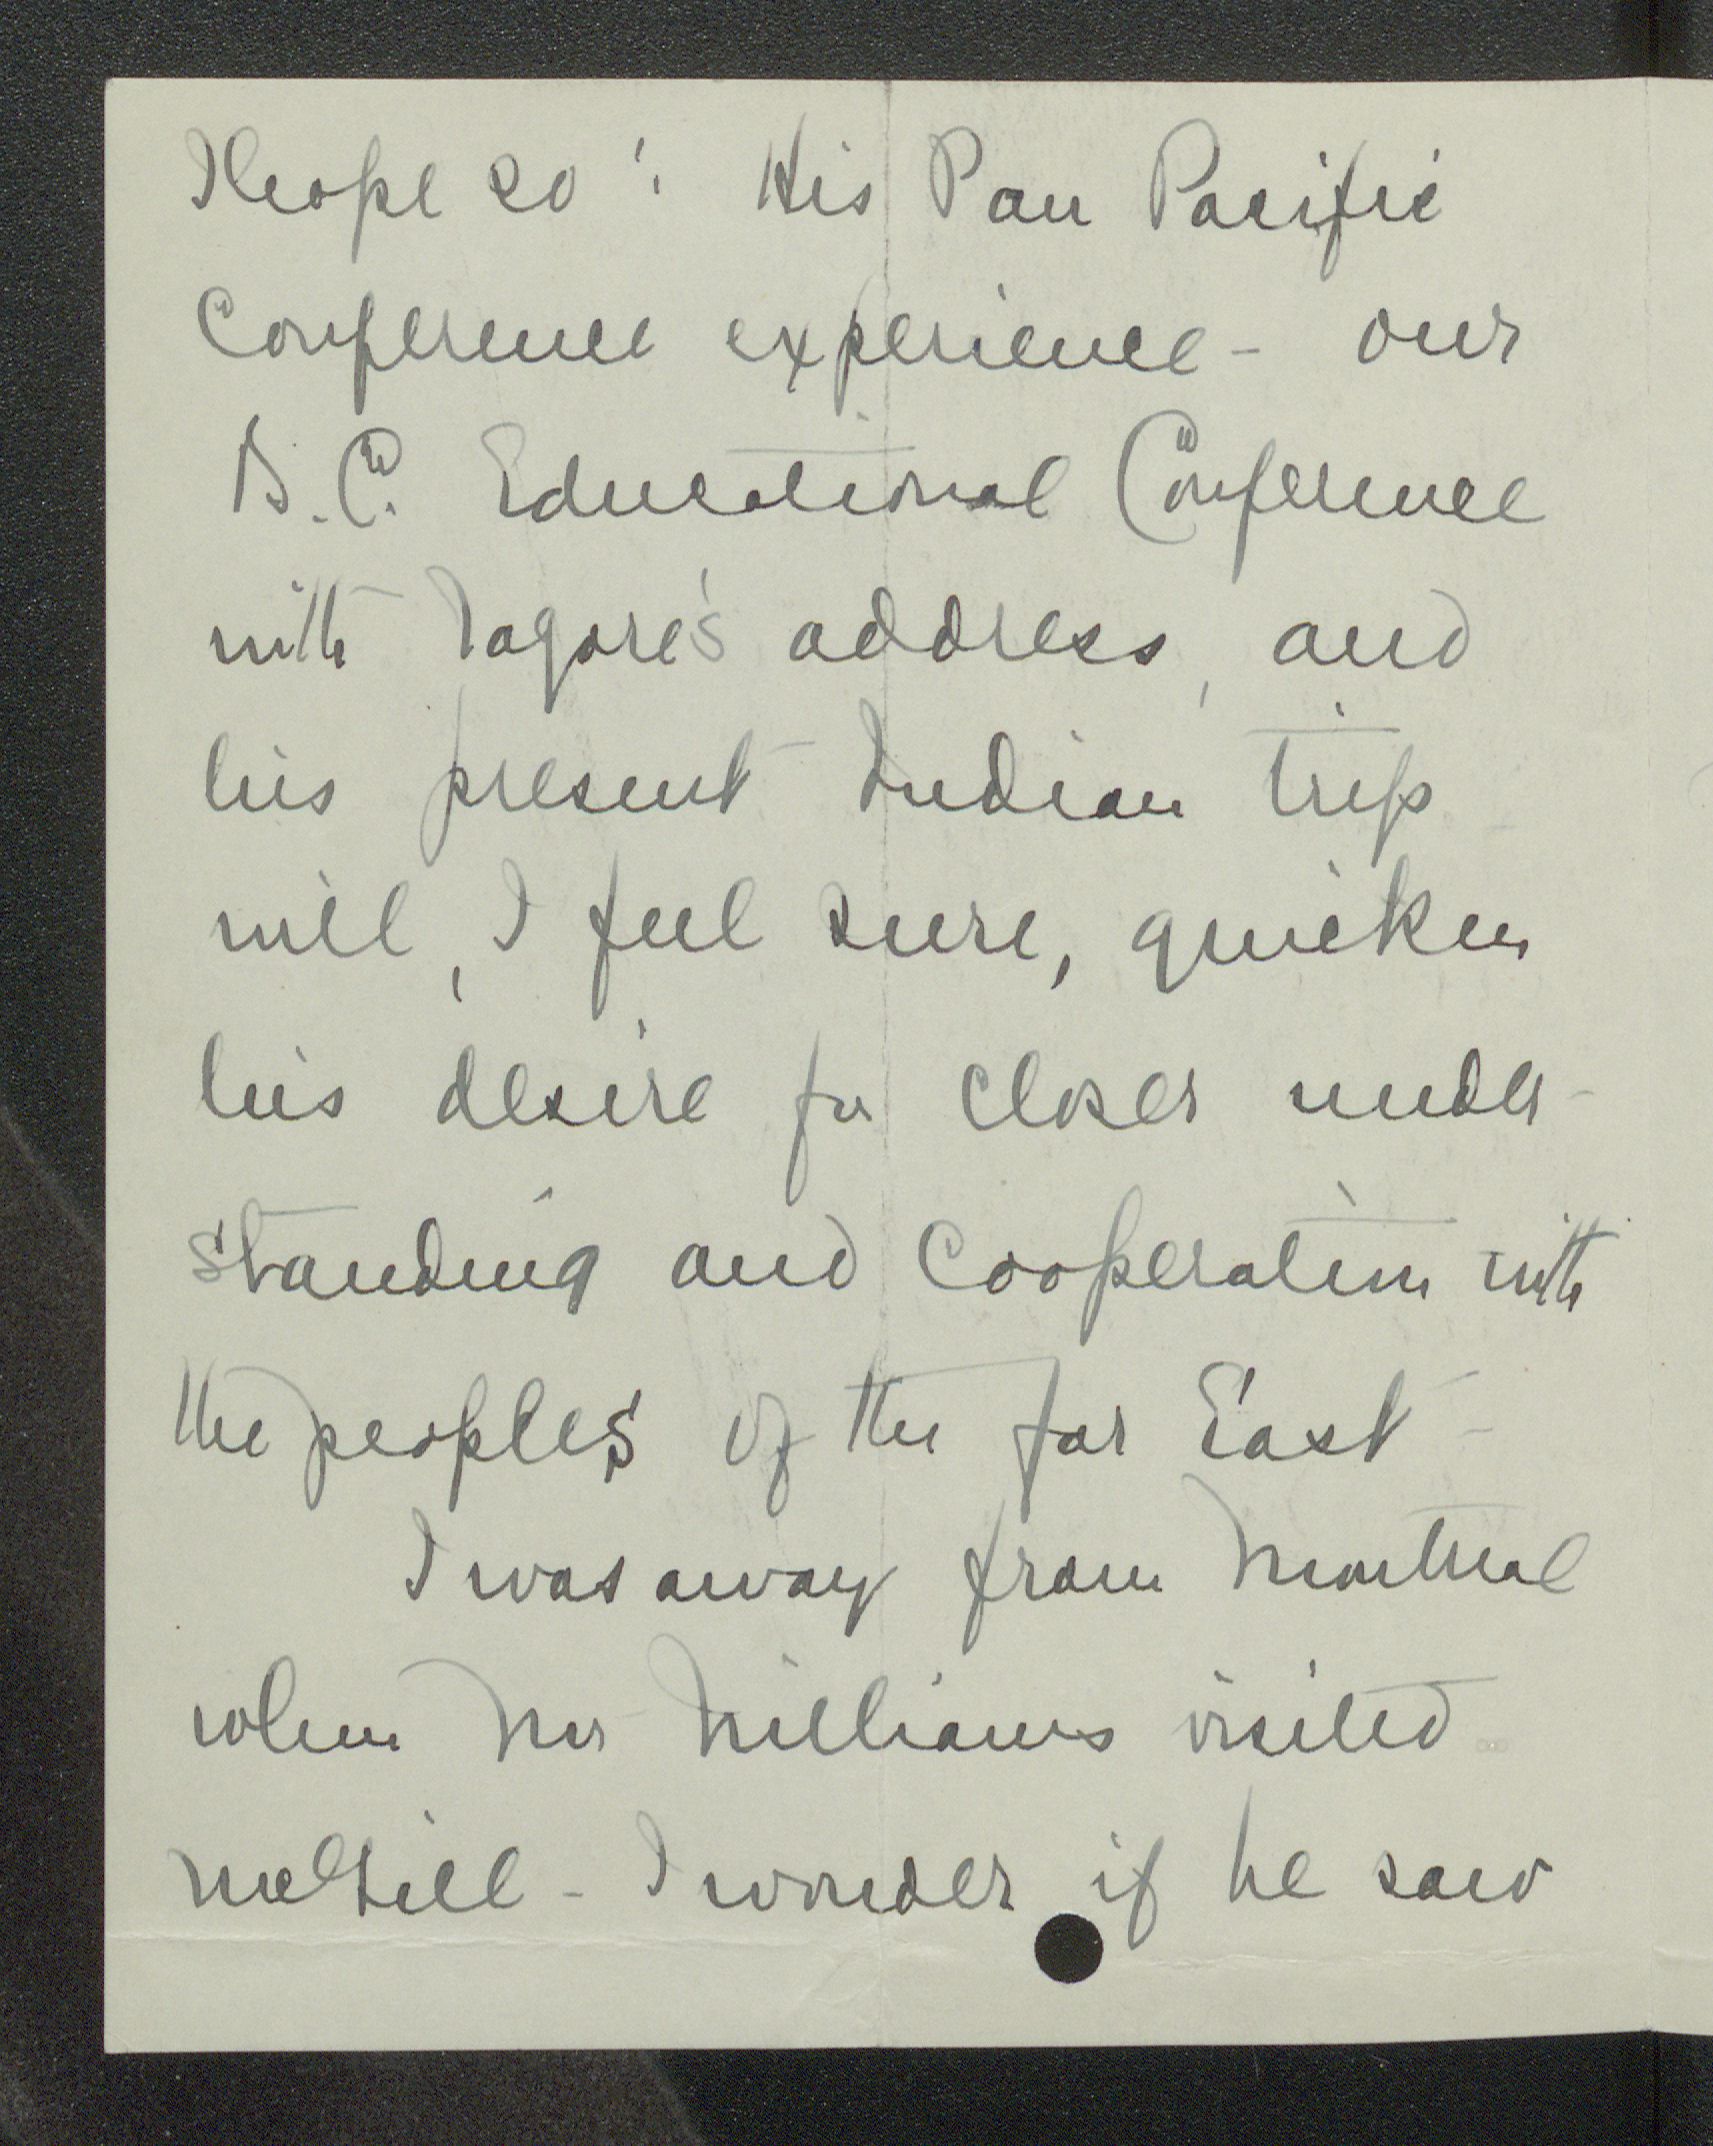 I hope so! His Pan Pacific
Conference experience - our
B.C. Educational Conference
with Tagore's address, and
his present Indian trip
will, I feel sure, quicken
his desire for closer under-
standing and cooperation with
the peoples of the far East -
I was away from Montreal
when Mr Williams visited
McGill - I wonder if he saw